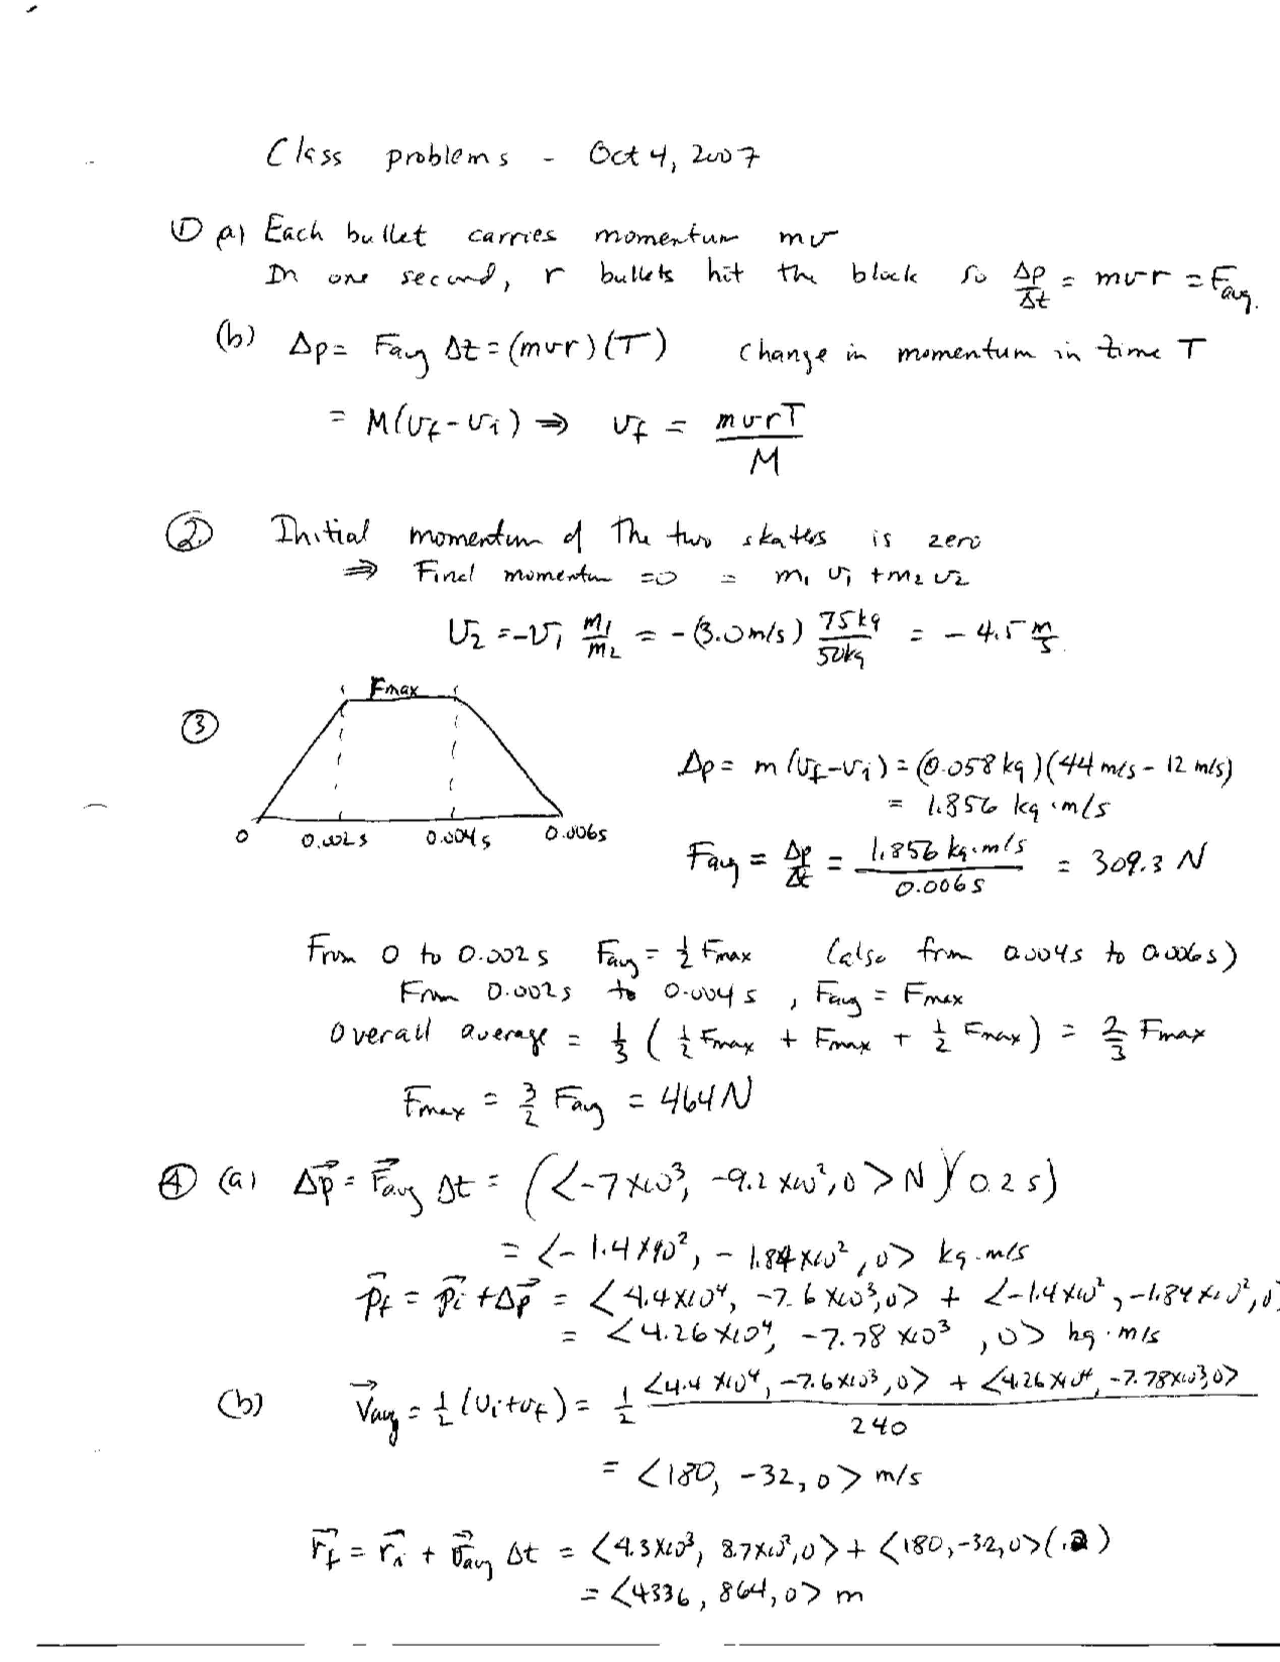 Class problems - Oct 4, 2007
① (a) Each bullet carries momentum mv
In one second, r bullets hit the block so Δp/Δt = mvr = Favg.
(b) Δp = Favg Δt = (mvr)(T) change in momentum in time T
= M(vf - vi) ⇒ vf = mvrT/M
② Initial momentum of the two skaters is zero
⇒ Final momentum = 0 = m1 v1 + m2 v2
v2 = -v1 m1/m2 = -(3.0 m/s) 75kg/50kg = -4.5 m/s.
③ Fmax
0 0.002s 0.004s 0.006s
Δp = m(vf - vi) = (0.058 kg)(44 m/s - 12 m/s)
= 1.856 kg·m/s
Favg = Δp/Δt = 1.856 kg·m/s / 0.006s = 309.3 N
From 0 to 0.002s Favg = 1/2 Fmax (also from 0.004s to 0.006s)
From 0.002s to 0.004s, Favg = Fmax
Overall average = 1/3 (1/2 Fmax + Fmax + 1/2 Fmax) = 2/3 Fmax
Fmax = 3/2 Favg = 464 N
④ (a) Δp⃗ = F⃗avg Δt = (<-7×10³, -9.2×10², 0> N)(0.2 s)
= <-1.4×10², -1.84×10², 0> kg·m/s
p⃗f = p⃗i + Δp⃗ = <4.4×10⁴, -7.6×10³, 0> + <-1.4×10², -1.84×10², 0>
= <4.26×10⁴, -7.78×10³, 0> kg·m/s
(b) v⃗avg = 1/2 (vi + vf) = 1/2 <4.4×10⁴, -7.6×10³, 0> + <4.26×10⁴, -7.78×10³, 0> / 240
= <180, -32, 0> m/s
r⃗f = r⃗i + v⃗avg Δt = <4.3×10³, 8.7×10², 0> + <180, -32, 0>(.2)
= <4336, 864, 0> m